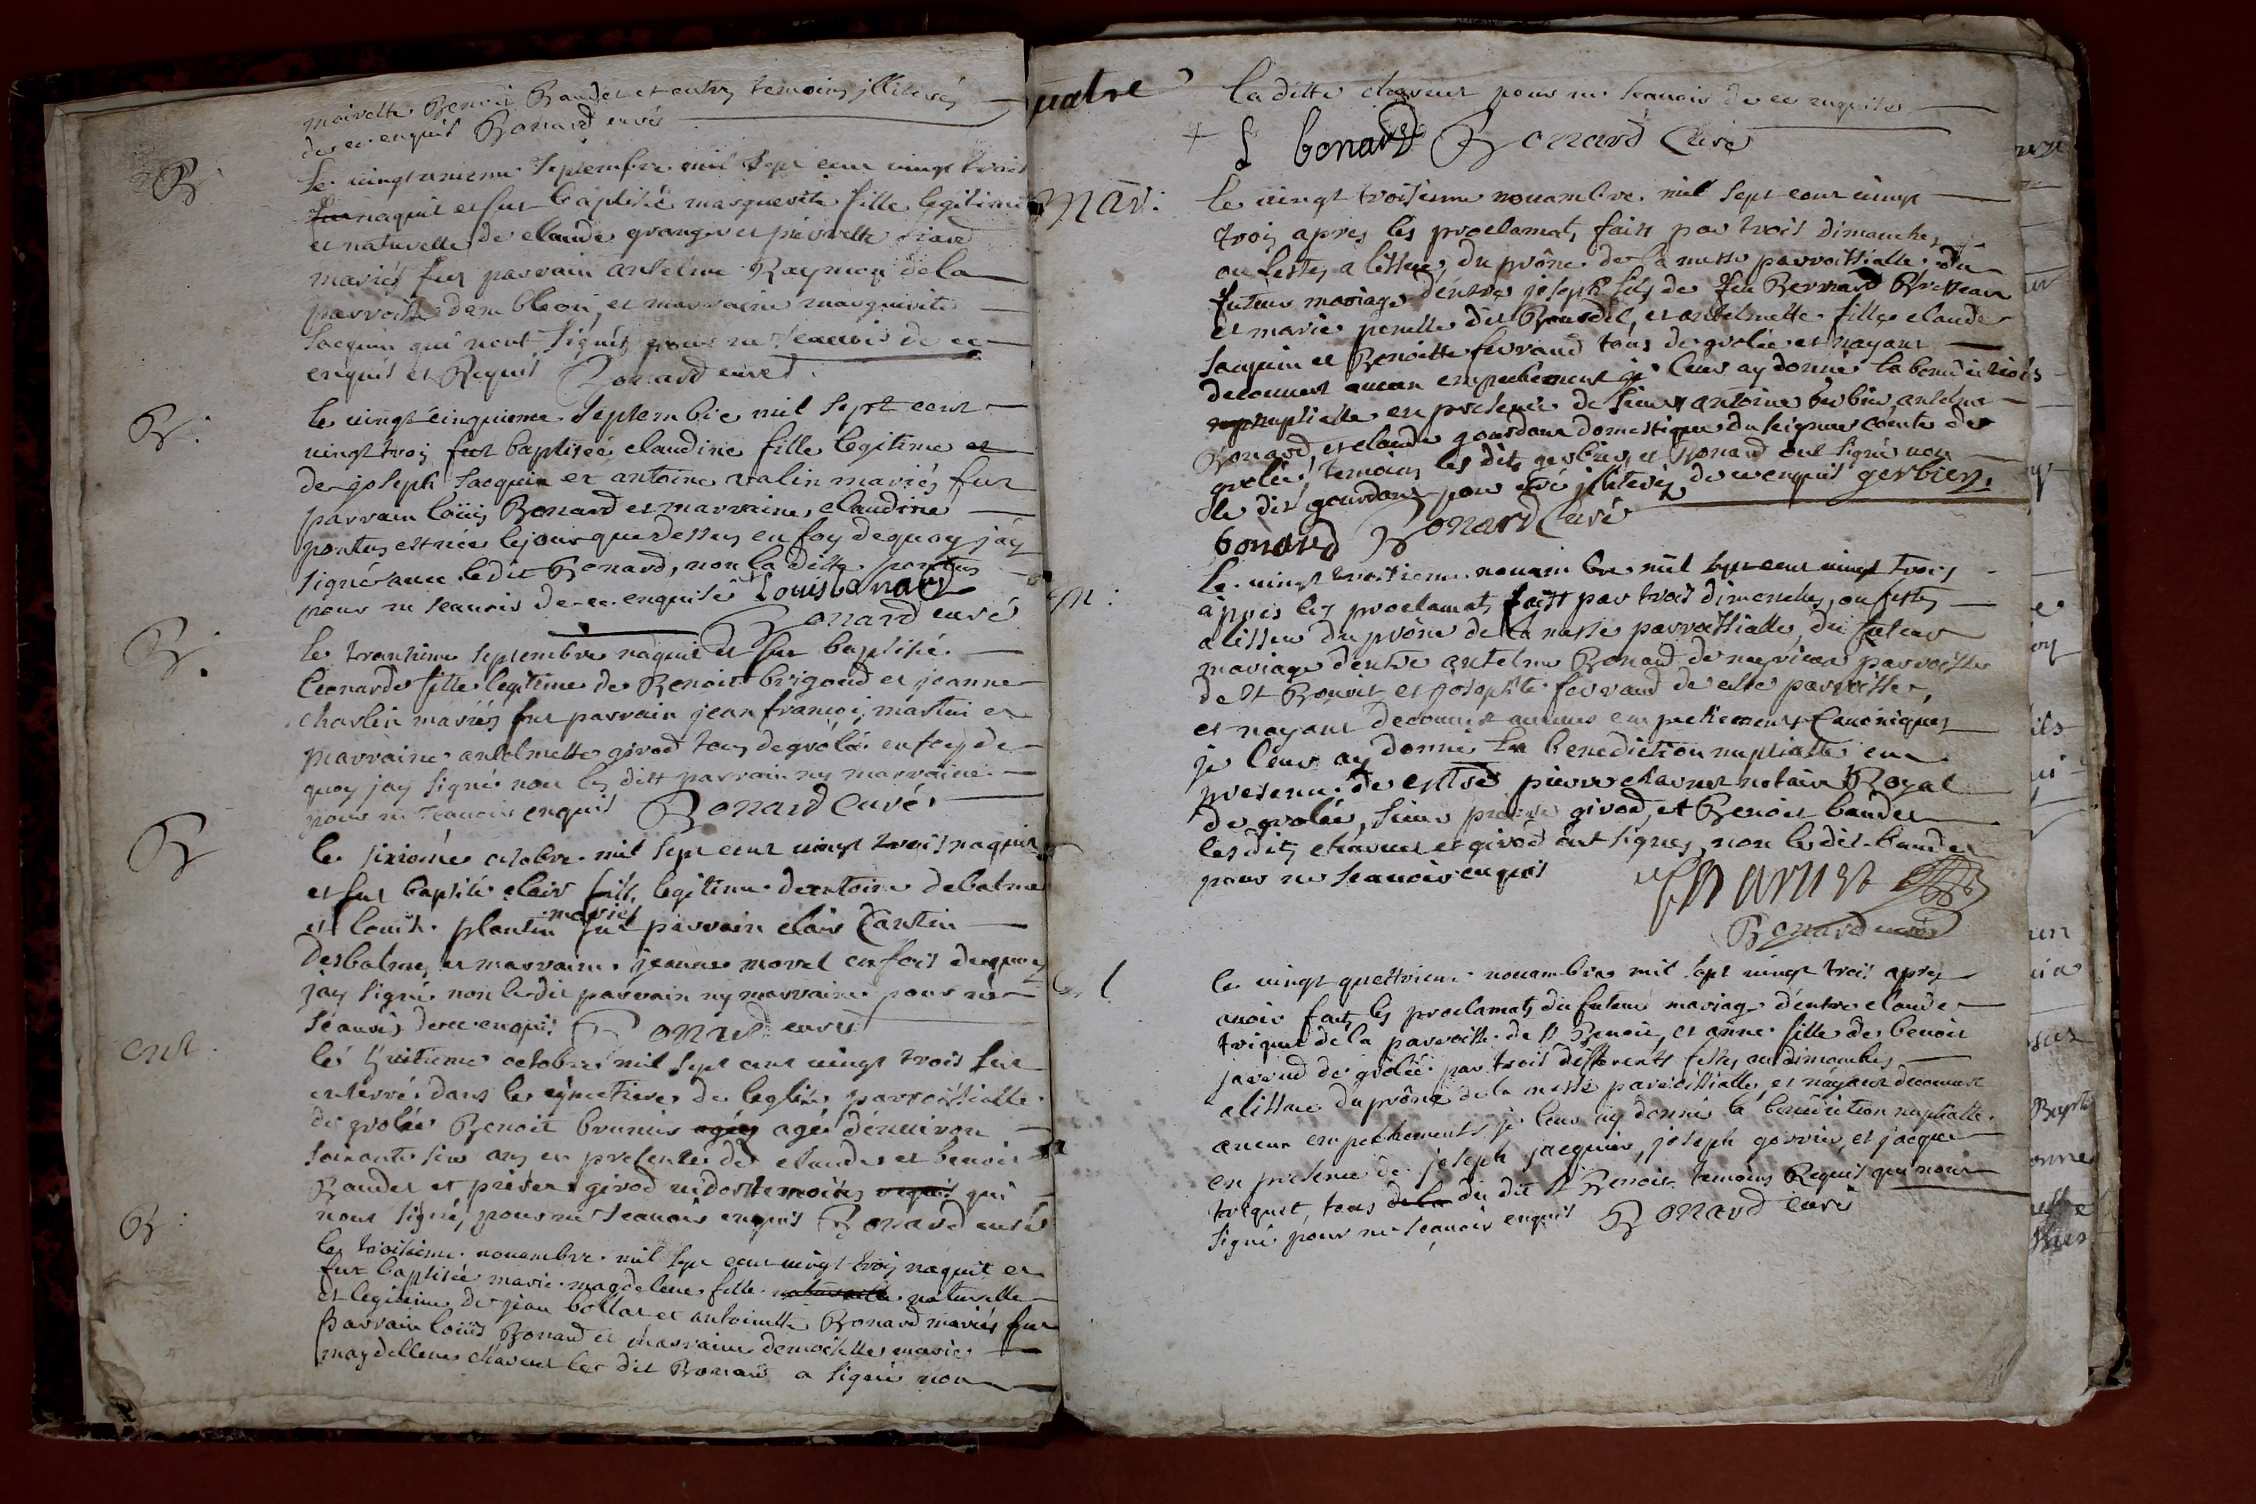 Benoit Baudet et autres temoins illiterés
de ce enquis Bonard curé
B
Le vingt unieme septembre mil sept cent vingt trois
naquit et fut baptisée marguerite fille legitime
et naturelle de claude granger et pierrette
mariés fut parrain antelme Raymon de la
parroisse et marraine marguerite
Jacquin qui n'ont signés pour ne scavoir de ce
enquis et Requis Bonard curé
B:
le vingt cinquieme septembre mil sept cent
vingt trois fut baptisée claudine fille legitime et
de joseph Jacquin et antoine valin mariés fut
parrain loüis Bonard et marraine claudine
pontus est née le jour que dessus en foy de quoy jáy
signé avec le dit Bonard, non la ditte pontus
pour ne scavoir de ce enquise Louis bonard
Bonard curé
B:
le trantieme septembre naquit et fut baptisée
Leonarde fille legitime de Benoit brigoud et jeanne
charlin mariés fut parrain jean françois martin et
marraine antelmette girod tous de grôlée en foy de
quoy jay signé non les dits parrain ny marraine
pour ne scavoir enquis Bonard Curé
B
le sixiéme octobre mil sept cent vingt trois naquit
et fut baptisé clair fils legitime de entoine debalme
et louise plantin mariés fut parrain clair Cantin
Desbalme et marraine jeanne morel en foit de quoy
jay signé non le dit parrain ny marraine pour ne
scavoir de ce enquis Bonard curé
ent.
lé huitieme octobre mil sept cent vingt trois fut
enterré dans le cymetiere de leglise parroissialle
de grolée Benoit brunier agés agé dénviron
soixante six ans en presence de claude et benoit
Baudet et girod temoins requis qui
nont signé, pour ne scavoir enquis Bonard curé
B:
le troisieme nouambre mil sept cent vingt trois naquit et
fut baptisée marie magdelene fille naturelle
et legitime de jean bollat et antoinette Bonard mariés fut
parrain loüis Bonard et marraine demoiselle marie
magdellene chavent le dit Bonard a signé non
quatre
la ditte chavent pour ne scavoir de ce enquise
L bonard Bonard Curé
mar:
le vingt troisieme nouambre mil sept cent vingt
trois apres les proclamats faits par trois dimanches
ou festes a lissue du prône de la messe parroissialle du
futur mariage d'entre joseph fils de feu Bernard
et marie perrette dit Bourdel, et antelmette fille claude
Jacquin et Benoitte ferrand tous de grolée et nayant
decouvert aucun empechement je leur ay donné la benediction
nuptialle en presence de sieur antoine antelme
Bonard, et claude gourdant domestique du seigneur comte de
grolée, temoins les dits gerbier, et Bonard ont signé non
le dit gourdant pour etre illiteré, de ce enquis gerbier
bonard Bonard Curé
m:
Le vingt troisieme nouambre mil sept cent vingt trois
àprés les proclamats faist par trois dimanches, ou festes
a lissue du prône de la messe parroissialle du futur
mariage d'entre antelme Bonard de parroisse
de St Benoit et josephte ferrand de cette parroisse,
et nayant decouvert aucuns empechements Canoniques
je leur ay donné la benediction nuptialle en
presence de pierre chavent notaire Royal
de grolée, sieur girod, et Benoit baudet
les dits chavent et girod ont signés, non le dit baudet
pour ne scavoir enquis
Charvet
Bonard curé
le vingt quattrieme nouambre mil sept vingt trois apres
avoir fait les proclamats du futur mariage d'entre claude
triquet de la parroisse de St Benoit, et anne fille de benoit
javend de grôlée par trois differents festes ou dimanches
a lissue du prône de la messe parroissialle et nayant decouvert
aucun empechements je leur ay donné la benediction nuptialle
en presence de joseph jacquier, joseph gorrier, et jacque
triquet, tous de la du dit St Benoit temoins Requis qui nont
signé pour ne scavoir enquis Bonard curé